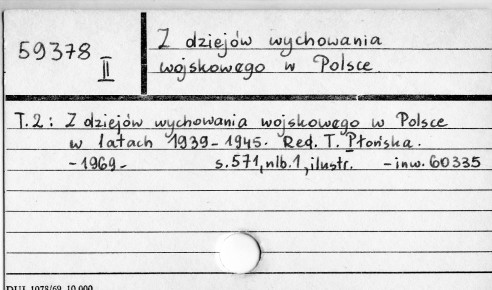 59378 II
Z dziejów wychowania
wojskowego w Polsce
T.2: Z dziejów wychowania wojskowego w Polsce
w latach 1939-1945. Red. T. Płońska.
-1969- s.571,nlb.1,ilustr. -inw. 60335
DUJ. 1078/69 10.000